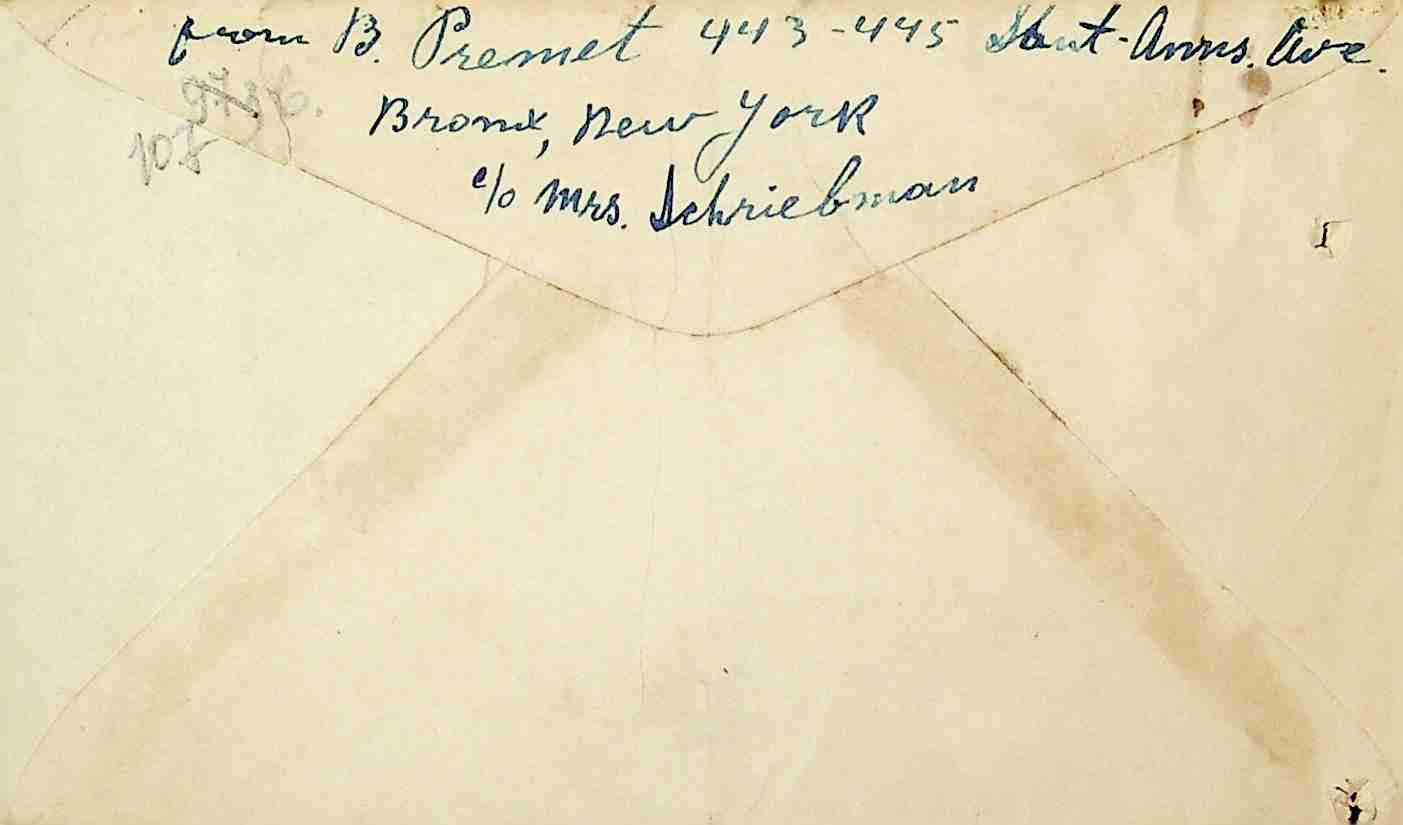 from B. Premet 443-445 Saint-Anns. Ave.
Bronx, New York
c/o Mrs. Schriebman
108